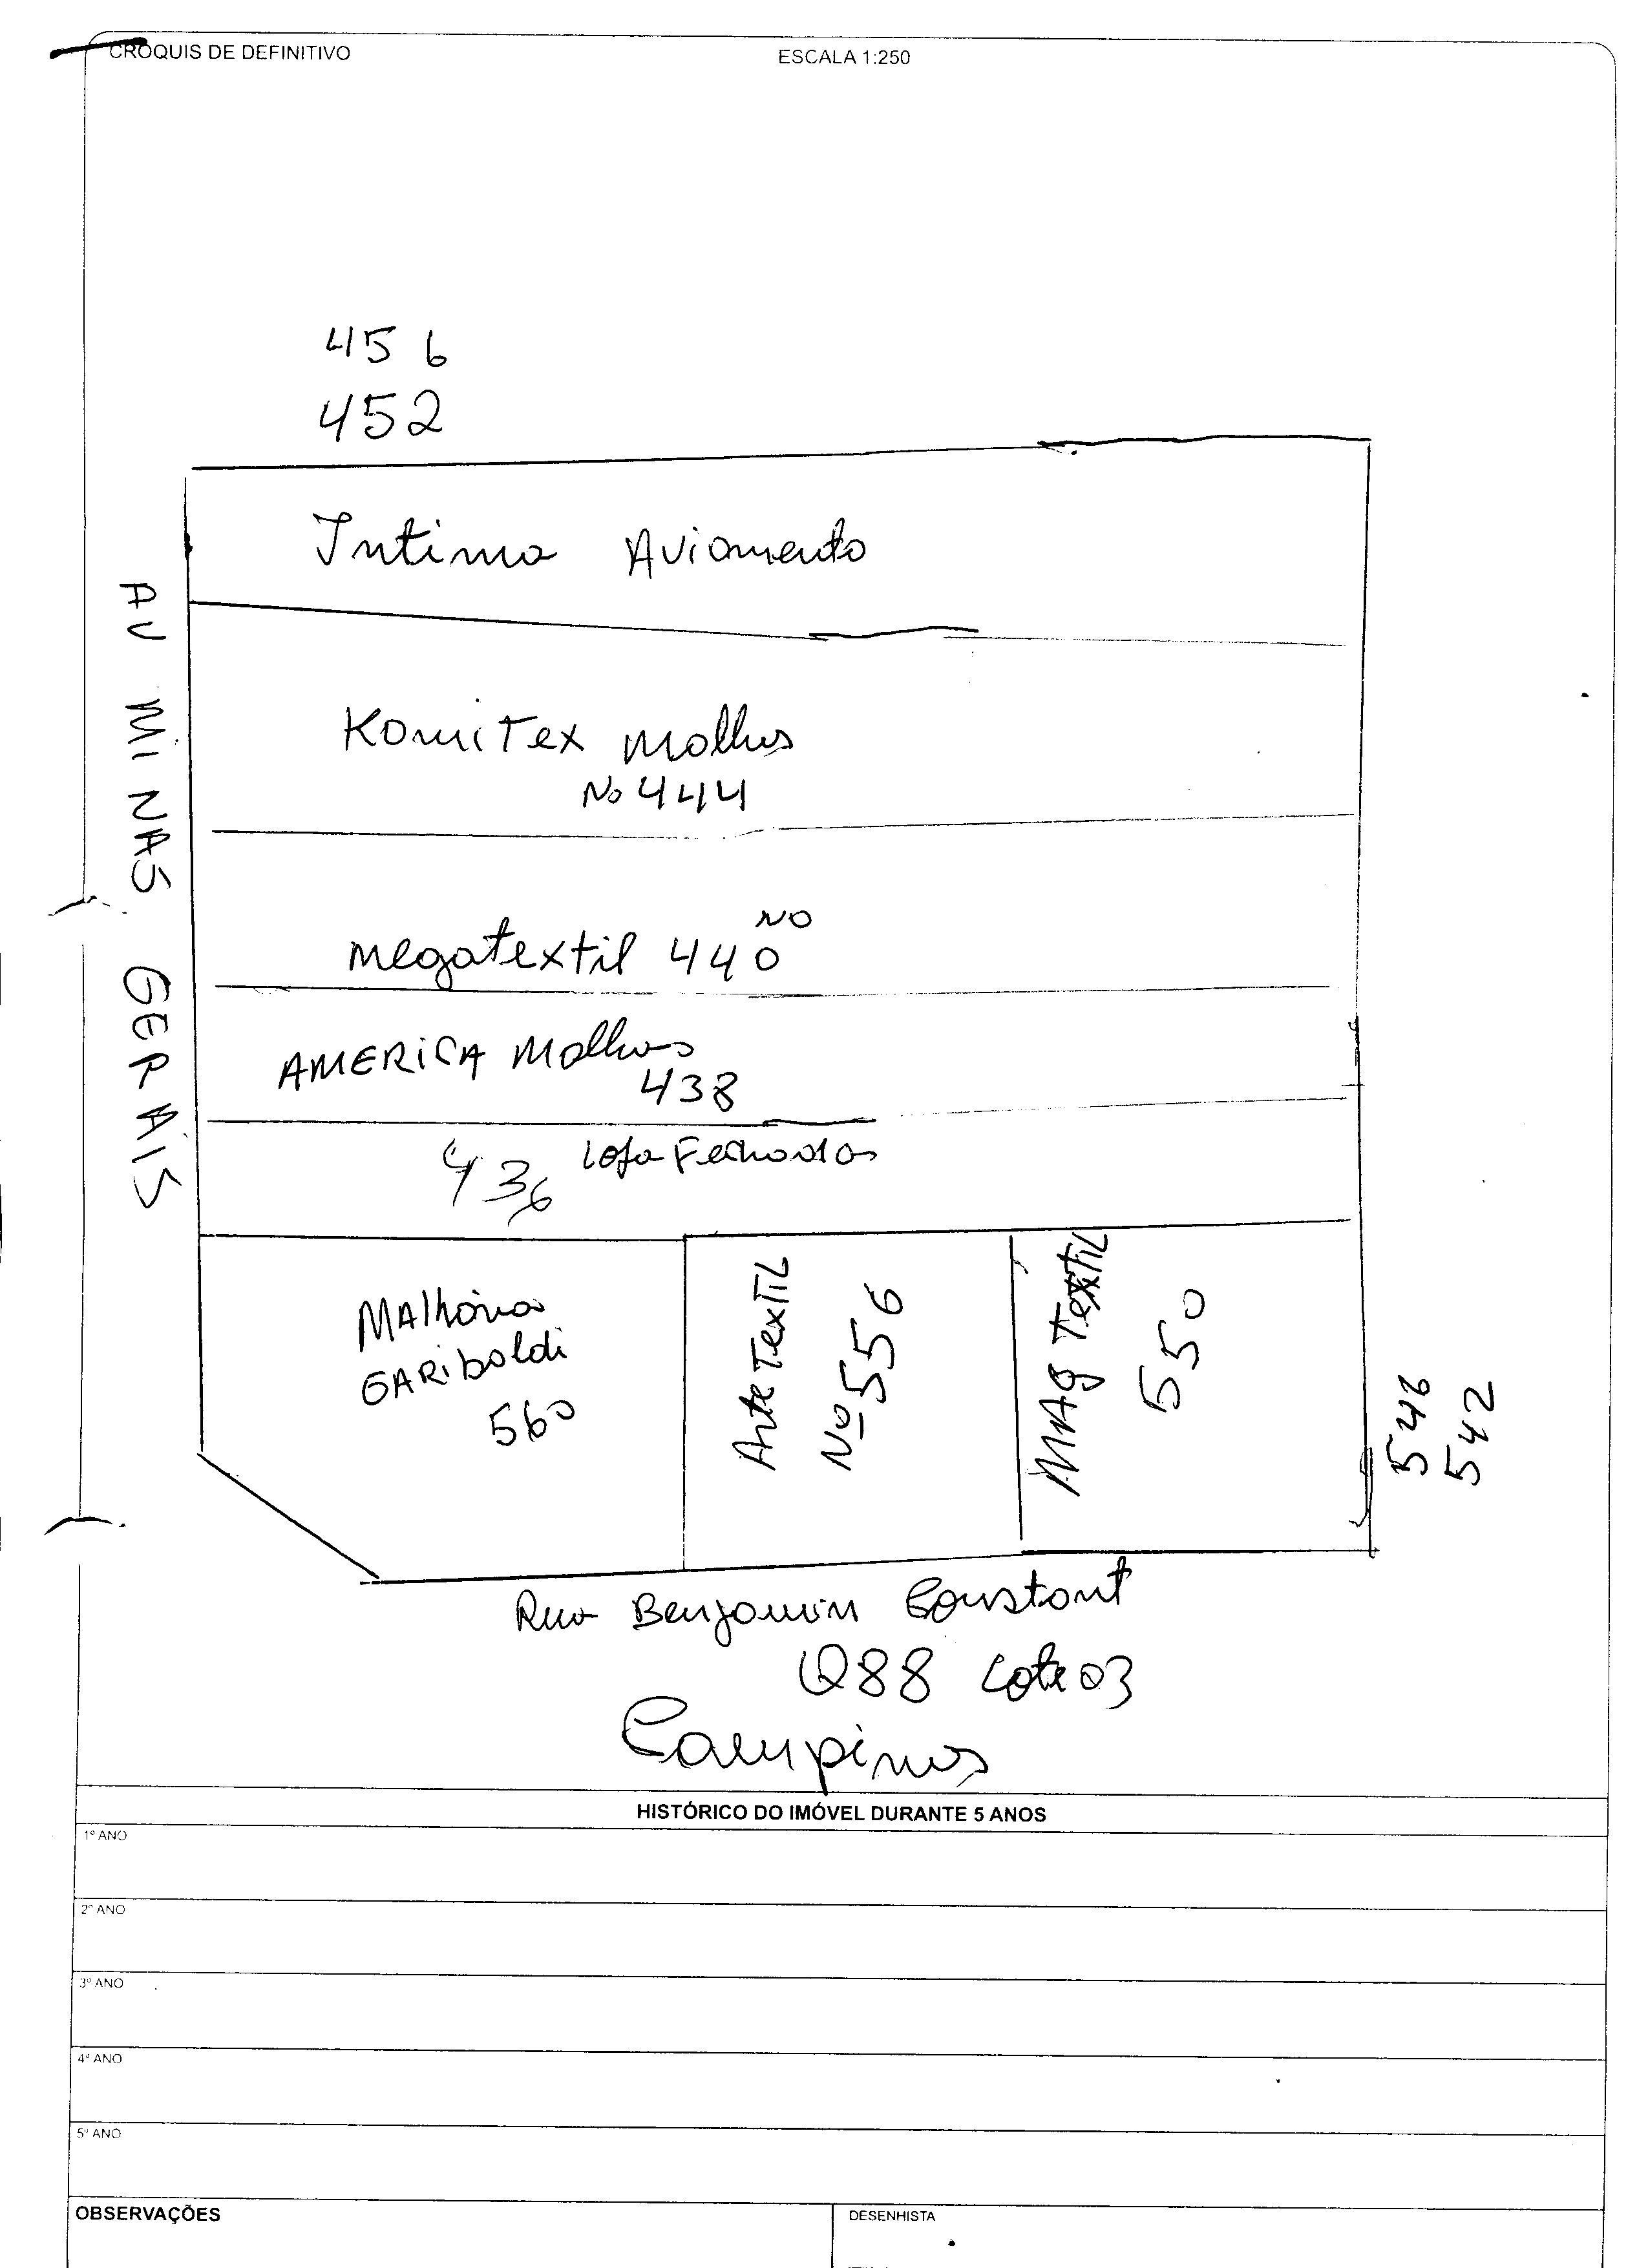 CROQUIS DE DEFINITIVO
ESCALA 1:250
456
452
Intima Aviamento
AV MINAS GERAIS
KomiTex Malhas
No 444
NO
Megatextil 440
AMERICA Malhas
438
436 Loja Fechada
MAlharia
GARibaldi
560
Arte TexTIL
Nº 556
MAG TexTIL
550
546
542
Rua Benjamin Constant
Q88 Lote 03
Campinas
HISTÓRICO DO IMÓVEL DURANTE 5 ANOS
1º ANO
2º ANO
3º ANO
4º ANO
5º ANO
OBSERVAÇÕES
DESENHISTA